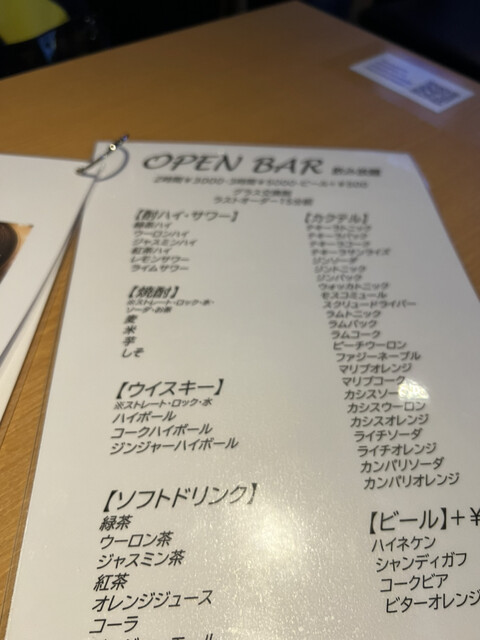 OPEN BAR 飲み放題
2時間¥3000・3時間¥5000・ビール+¥500
グラス交換制
ラストオーダー15分前
【酎ハイ・サワー】
緑茶ハイ
ウーロンハイ
ジャスミンハイ
紅茶ハイ
レモンサワー
ライムサワー
【焼酎】
※ストレート・ロック・水・
ソーダ・お茶
麦
米
芋
しそ
【ウイスキー】
※ストレート・ロック・水
ハイボール
コークハイボール
ジンジャーハイボール
【ソフトドリンク】
緑茶
ウーロン茶
ジャスミン茶
紅茶
オレンジジュース
コーラ
【カクテル】
テキーラトニック
テキーラバック
テキーラコーク
テキーラサンライズ
ジンソーダ
ジントニック
ジンバック
ウォッカトニック
モスコミュール
スクリュードライバー
ラムトニック
ラムバック
ラムコーク
ピーチウーロン
ファジーネーブル
マリブオレンジ
マリブコーク
カシスソーダ
カシスウーロン
カシスオレンジ
ライチソーダ
ライチオレンジ
カンパリソーダ
カンパリオレンジ
【ビール】+¥
ハイネケン
シャンディガフ
コークビア
ビターオレンジ